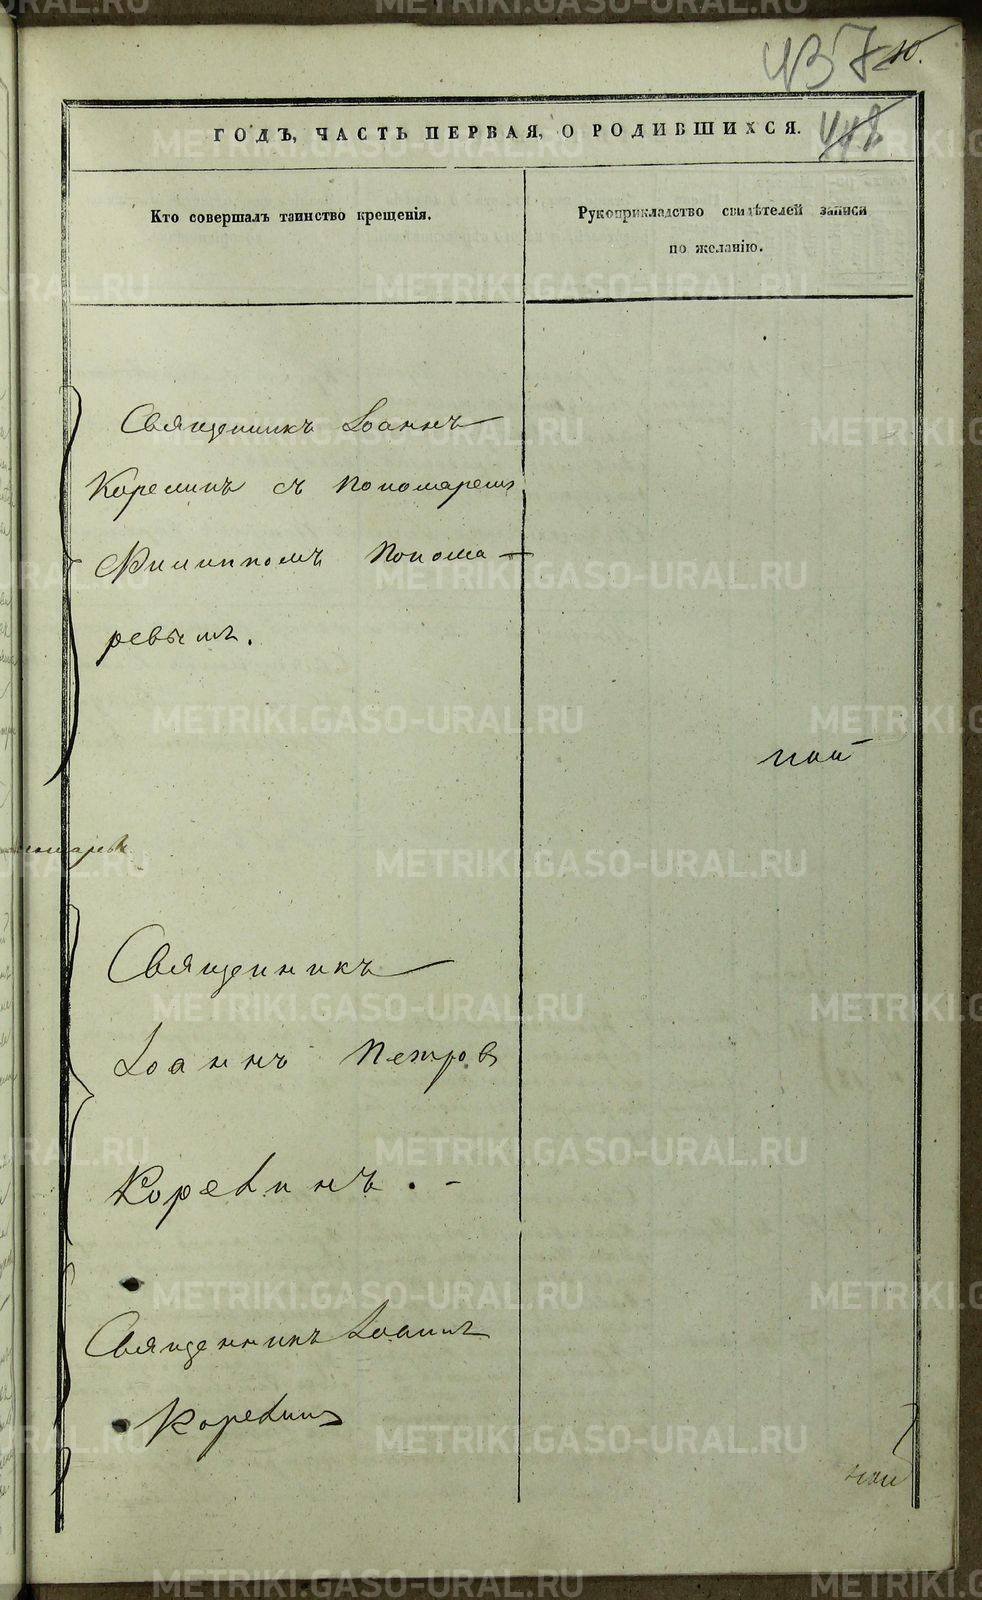 437
10.
ГОДЪ, ЧАСТЬ ПЕРВАЯ, О РОДИВШИХСЯ.
Кто совершалъ таинство крещенія.
Рукоприкладство свидѣтелей записи
по желанію.
Священникъ Іоаннъ
Корелинъ съ Пономаремъ
Филиппомъ Понома-
ревымъ.
Священникъ
Іоаннъ Петровъ
Корелинъ. -
Священникъ Іоаннъ
Корелинъ
METRIKI.GASO-URAL.RU